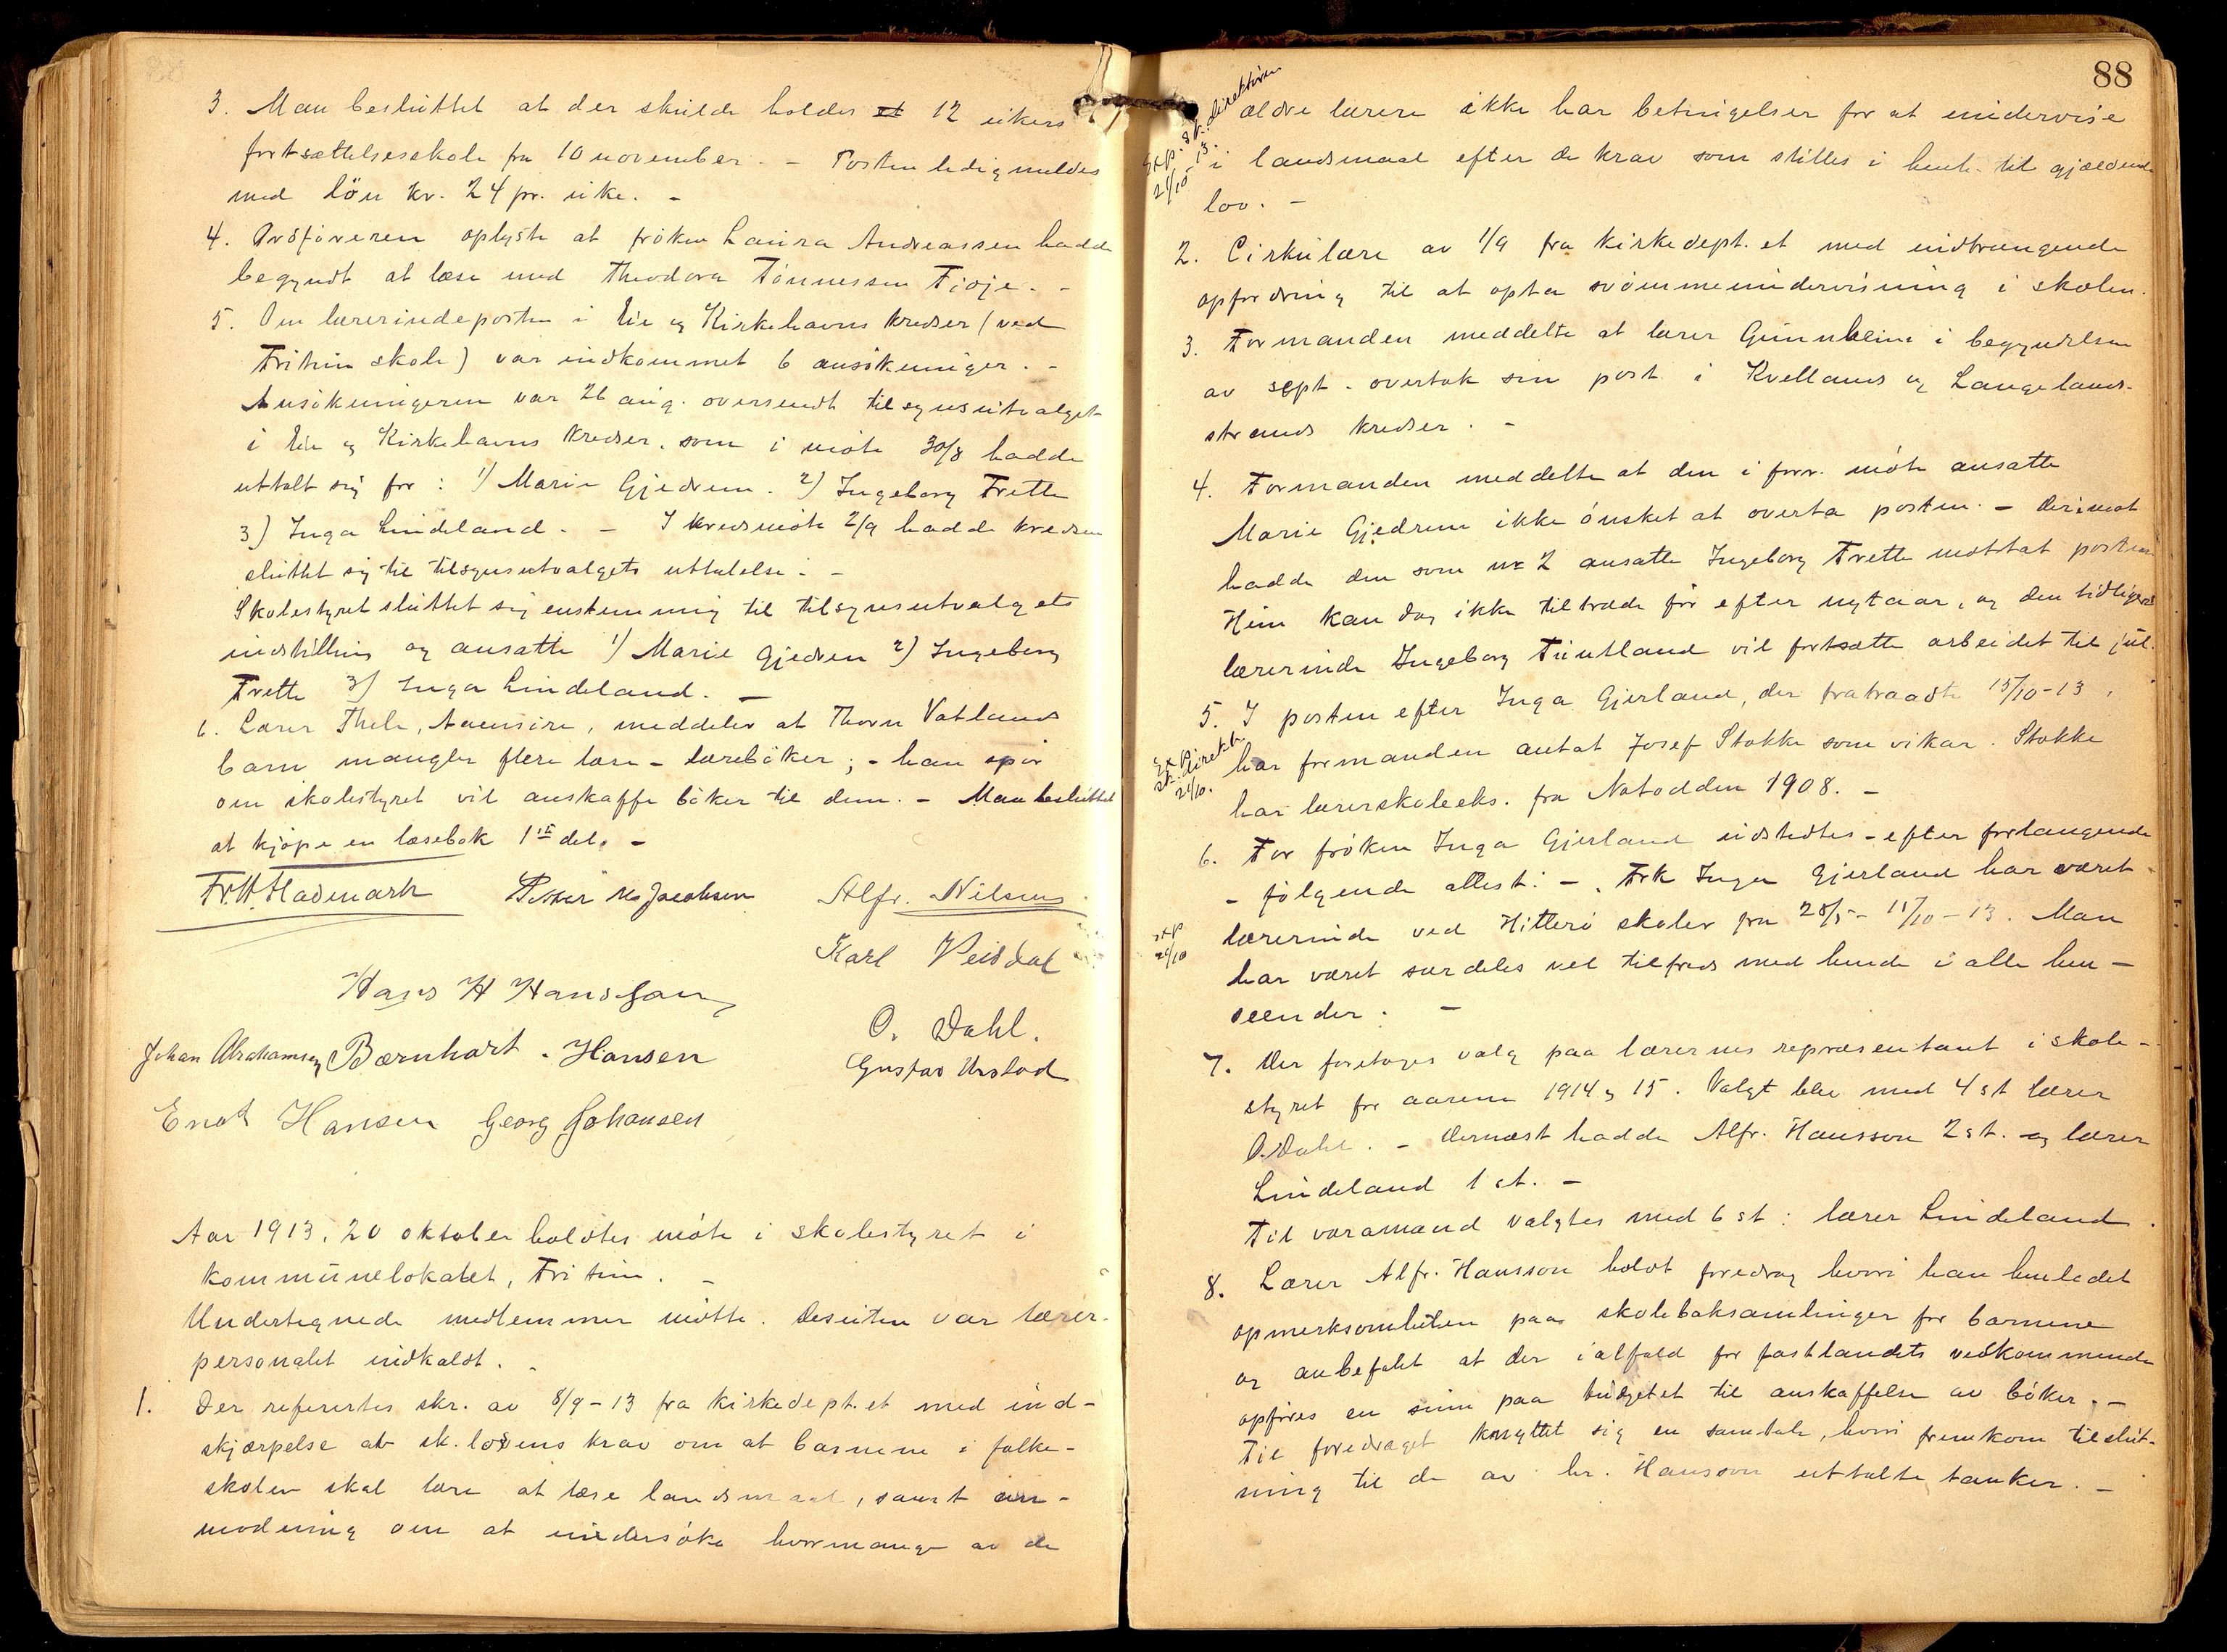 3. Man besluttet at der skulde holdes et 12 ukers
fortsættelsesskole fra 10 november. - Posten ledigmeldes
med lön kr. 24 pr. uke. -
4. Ordföreren oplyste at fröken Laura Andreassen hadde
begyndt at læse med Theodora Tönnessen Fjoje. -
5. Om lærerindeposten i Lie og Kirkehavns kredser (ved
Tritun skole) var indkommet 6 ansökninger. -
Ansökningerne var 26 aug. oversendt tilsynsutvalget
i Lie og Kirkehavns kredser, som i möte 30/8 hadde
uttalt sig for: 1) Marie Gjedrem. 2) Ingeborg Frette
3) Inga Lindeland. - I kredsmöte 2/9 hadde kredsen
sluttet sig til tilsynsutvalgets uttalelse. -
Skolestyret sluttet sig enstemmig til tilsynsutvalgets
indstilling og ansatte 1) Marie Gjedrem 2) Ingeborg
Frette 3) Inga Lindeland. -
6. Lærer Thele, meddeler at Thorn Vatlands
barn mangler flere læse- læreböker; - han spör
om skolestyret vil anskaffe böker til dem. - Man besluttet
at kjöpe en læsebok 1ste del. -
Fr. W. Hadmark Peder Jacobsen Alfr. Nilsen
Karl Veisdal
Hans H Handsan
O. Dahl.
Johan Abrahamsen Bærnhart. Hansen
Gustav Urstad
Enok Hansen Georg Johansen
Aar 1913, 20 oktober holdtes möte i skolestyret i
kommunelokalet, Tritun. -
Undertegnede medlemmer mötte. Desuten var lærer-
personalet indkaldt. -
1. Der refertes skr. av 8/9-13 fra kirkedept.et med ind-
skjærpelse av sk.lovens krav om at barnene i folke-
skolen skal lære at læse landsmaal, samt an-
modning om at undersöke hvormange av de
88
Exp. sk.direktören
21/10-13.
ældre lærere ikke har betingelser for at undervise
i landsmaal efter de krav som stilles i henh. til gjældende
lov. -
2. Cirkulære av 1/9 fra kirkedept.et med indtrængende
opfordring til at opta svömmeundervisning i skolen.
3. Formanden meddelte at lærer Gunnheim i begyndelsen
av sept. overtok sin post i Kvellands og Langelands-
strands kredser. -
4. Formanden meddelte at den i forr. möte ansatte
Marie Gjedrem ikke önsket at overta posten. - Derimot
hadde den som nr 2 ansatte Ingeborg Frette mottat posten
Hun kan dog ikke tiltræde för efter nytaar, og den tidligere
lærerinde Ingeborg Tuntland vil fortsætte arbeidet til jul.
5. I posten efter Inga Gjerland, der fratraadte 15/10-13,
Exp. sk.direkt.
21/10.
har formanden antat Josef Stokke som vikar. Stokke
har lærerskoleeks. fra Notodden 1908. -
6. For fröken Inga Gjerland utstedtes - efter forlangende
- fölgende attest: - „Frk Inga Gjerland har været
exp
21/10
lærerinde ved Hitterö skoler fra 28/5 - 15/10-13. Man
har været særdeles vel tilfreds med hende i alle hen-
seender. -
7. Der foretages valg paa lærernes repræsentant i skole-
styret for aarene 1914 og 15. Valgt blev med 4 st lærer
O. Dahl. - Dernæst hadde Alfr. Hansson 2 st. og lærer
Lindeland 1 st. -
Til varamand valgtes med 6 st: lærer Lindeland.
8. Lærer Alfr. Hansson holdt foredrag hvori han henledet
opmerksomheten paa skoleboksamlinger for barnene
og anbefalet at der ialfald for fastlandets vedkommende
opföres en sum paa budgetet til anskaffelse av böker. -
Til foredraget knyttet sig en samtale, hvori fremkom tilslut-
ning til de av hr. Hansson uttalte tanker. -